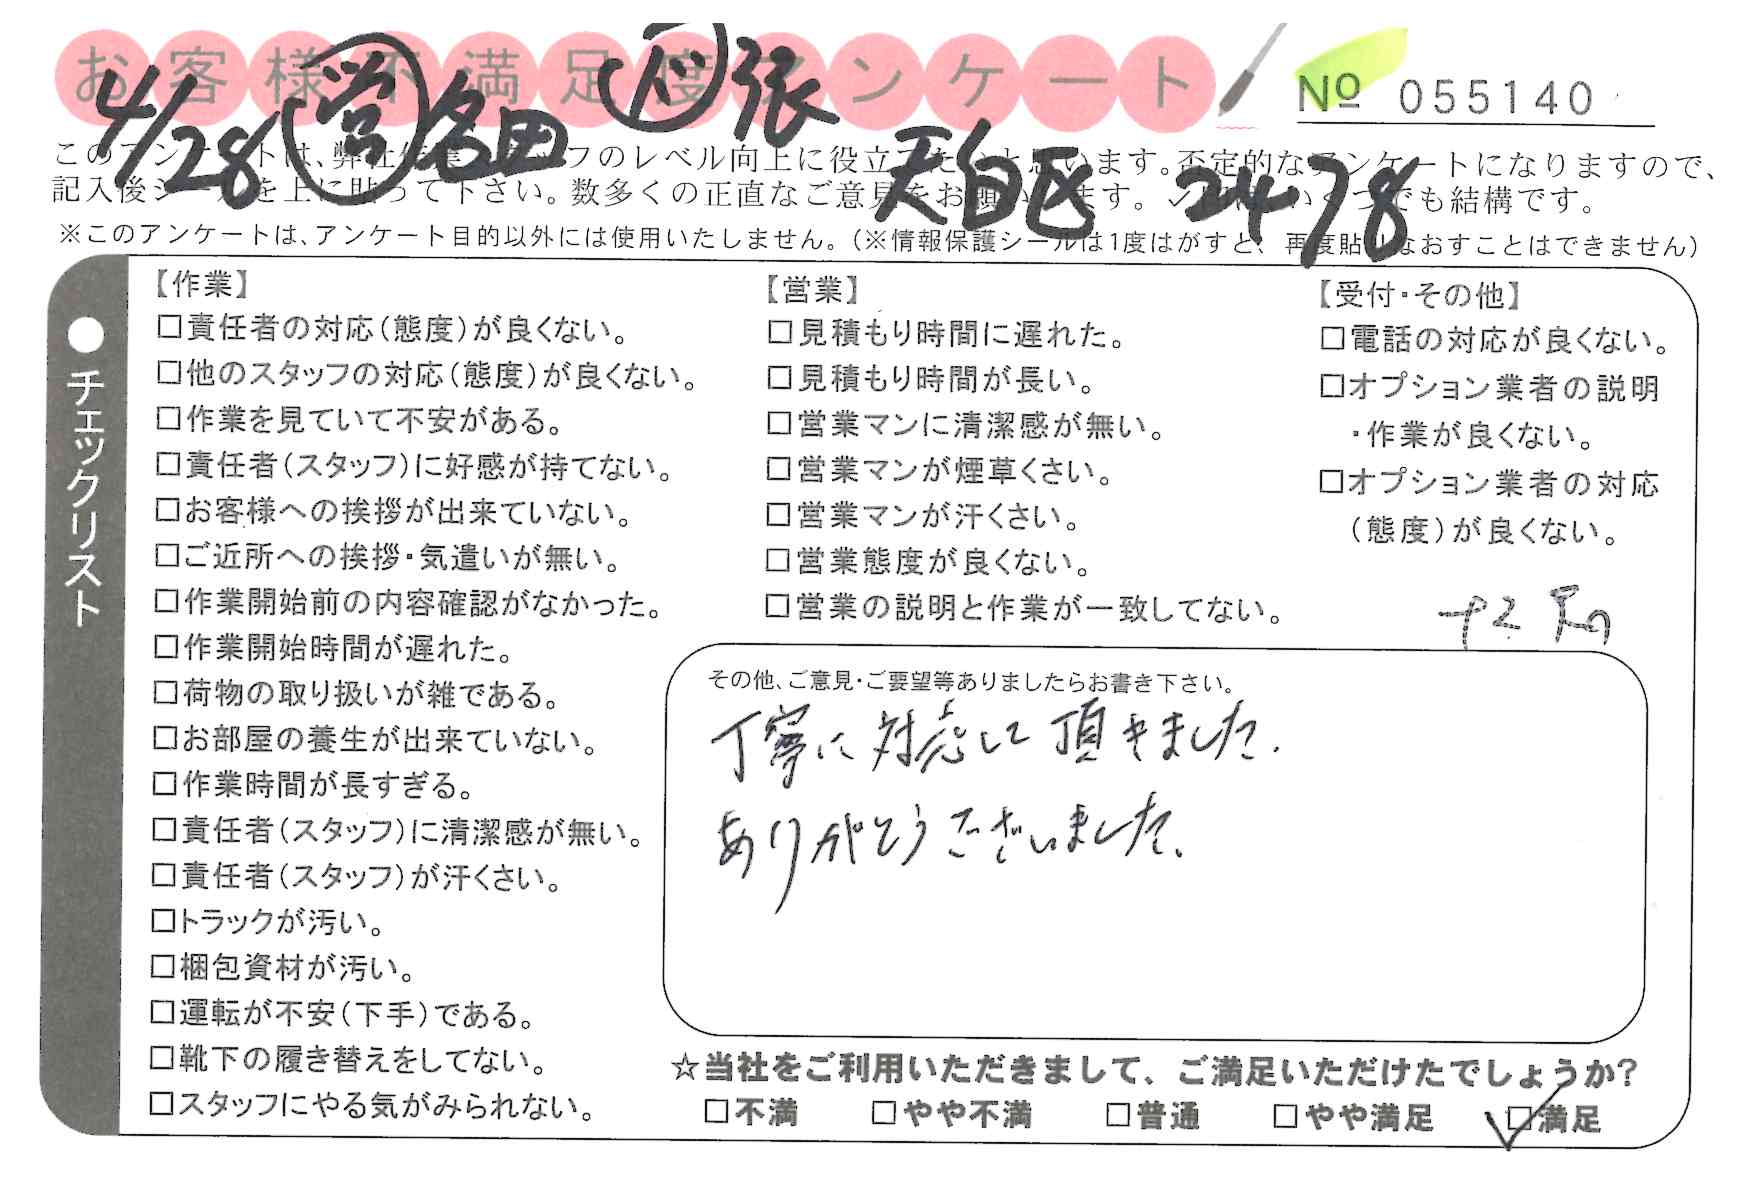 お客様不満足度アンケート
№ 055140
4/28 営 名田 張
天白区 2478
このアンケートは、弊社作業スタッフのレベル向上に役立てたいと思います。否定的なアンケートになりますので、
記入後シールを上に貼って下さい。数多くの正直なご意見をお願いします。✓印はいくつでも結構です。
※このアンケートは、アンケート目的以外には使用いたしません。(※情報保護シールは1度はがすと、再度貼りなおすことはできません)
●チェックリスト
【作業】
□責任者の対応(態度)が良くない。
□他のスタッフの対応(態度)が良くない。
□作業を見ていて不安がある。
□責任者(スタッフ)に好感が持てない。
□お客様への挨拶が出来ていない。
□ご近所への挨拶・気遣いが無い。
□作業開始前の内容確認がなかった。
□作業開始時間が遅れた。
□荷物の取り扱いが雑である。
□お部屋の養生が出来ていない。
□作業時間が長すぎる。
□責任者(スタッフ)に清潔感が無い。
□責任者(スタッフ)が汗くさい。
□トラックが汚い。
□梱包資材が汚い。
□運転が不安(下手)である。
□靴下の履き替えをしてない。
□スタッフにやる気がみられない。
【営業】
□見積もり時間に遅れた。
□見積もり時間が長い。
□営業マンに清潔感が無い。
□営業マンが煙草くさい。
□営業マンが汗くさい。
□営業態度が良くない。
□営業の説明と作業が一致してない。
【受付・その他】
□電話の対応が良くない。
□オプション業者の説明
・作業が良くない。
□オプション業者の対応
(態度)が良くない。
その他、ご意見・ご要望等ありましたらお書き下さい。
丁寧に対応して頂きました.
ありがとうございました、
☆当社をご利用いただきまして、ご満足いただけたでしょうか?
□不満 □やや不満 □普通 □やや満足 ☑満足